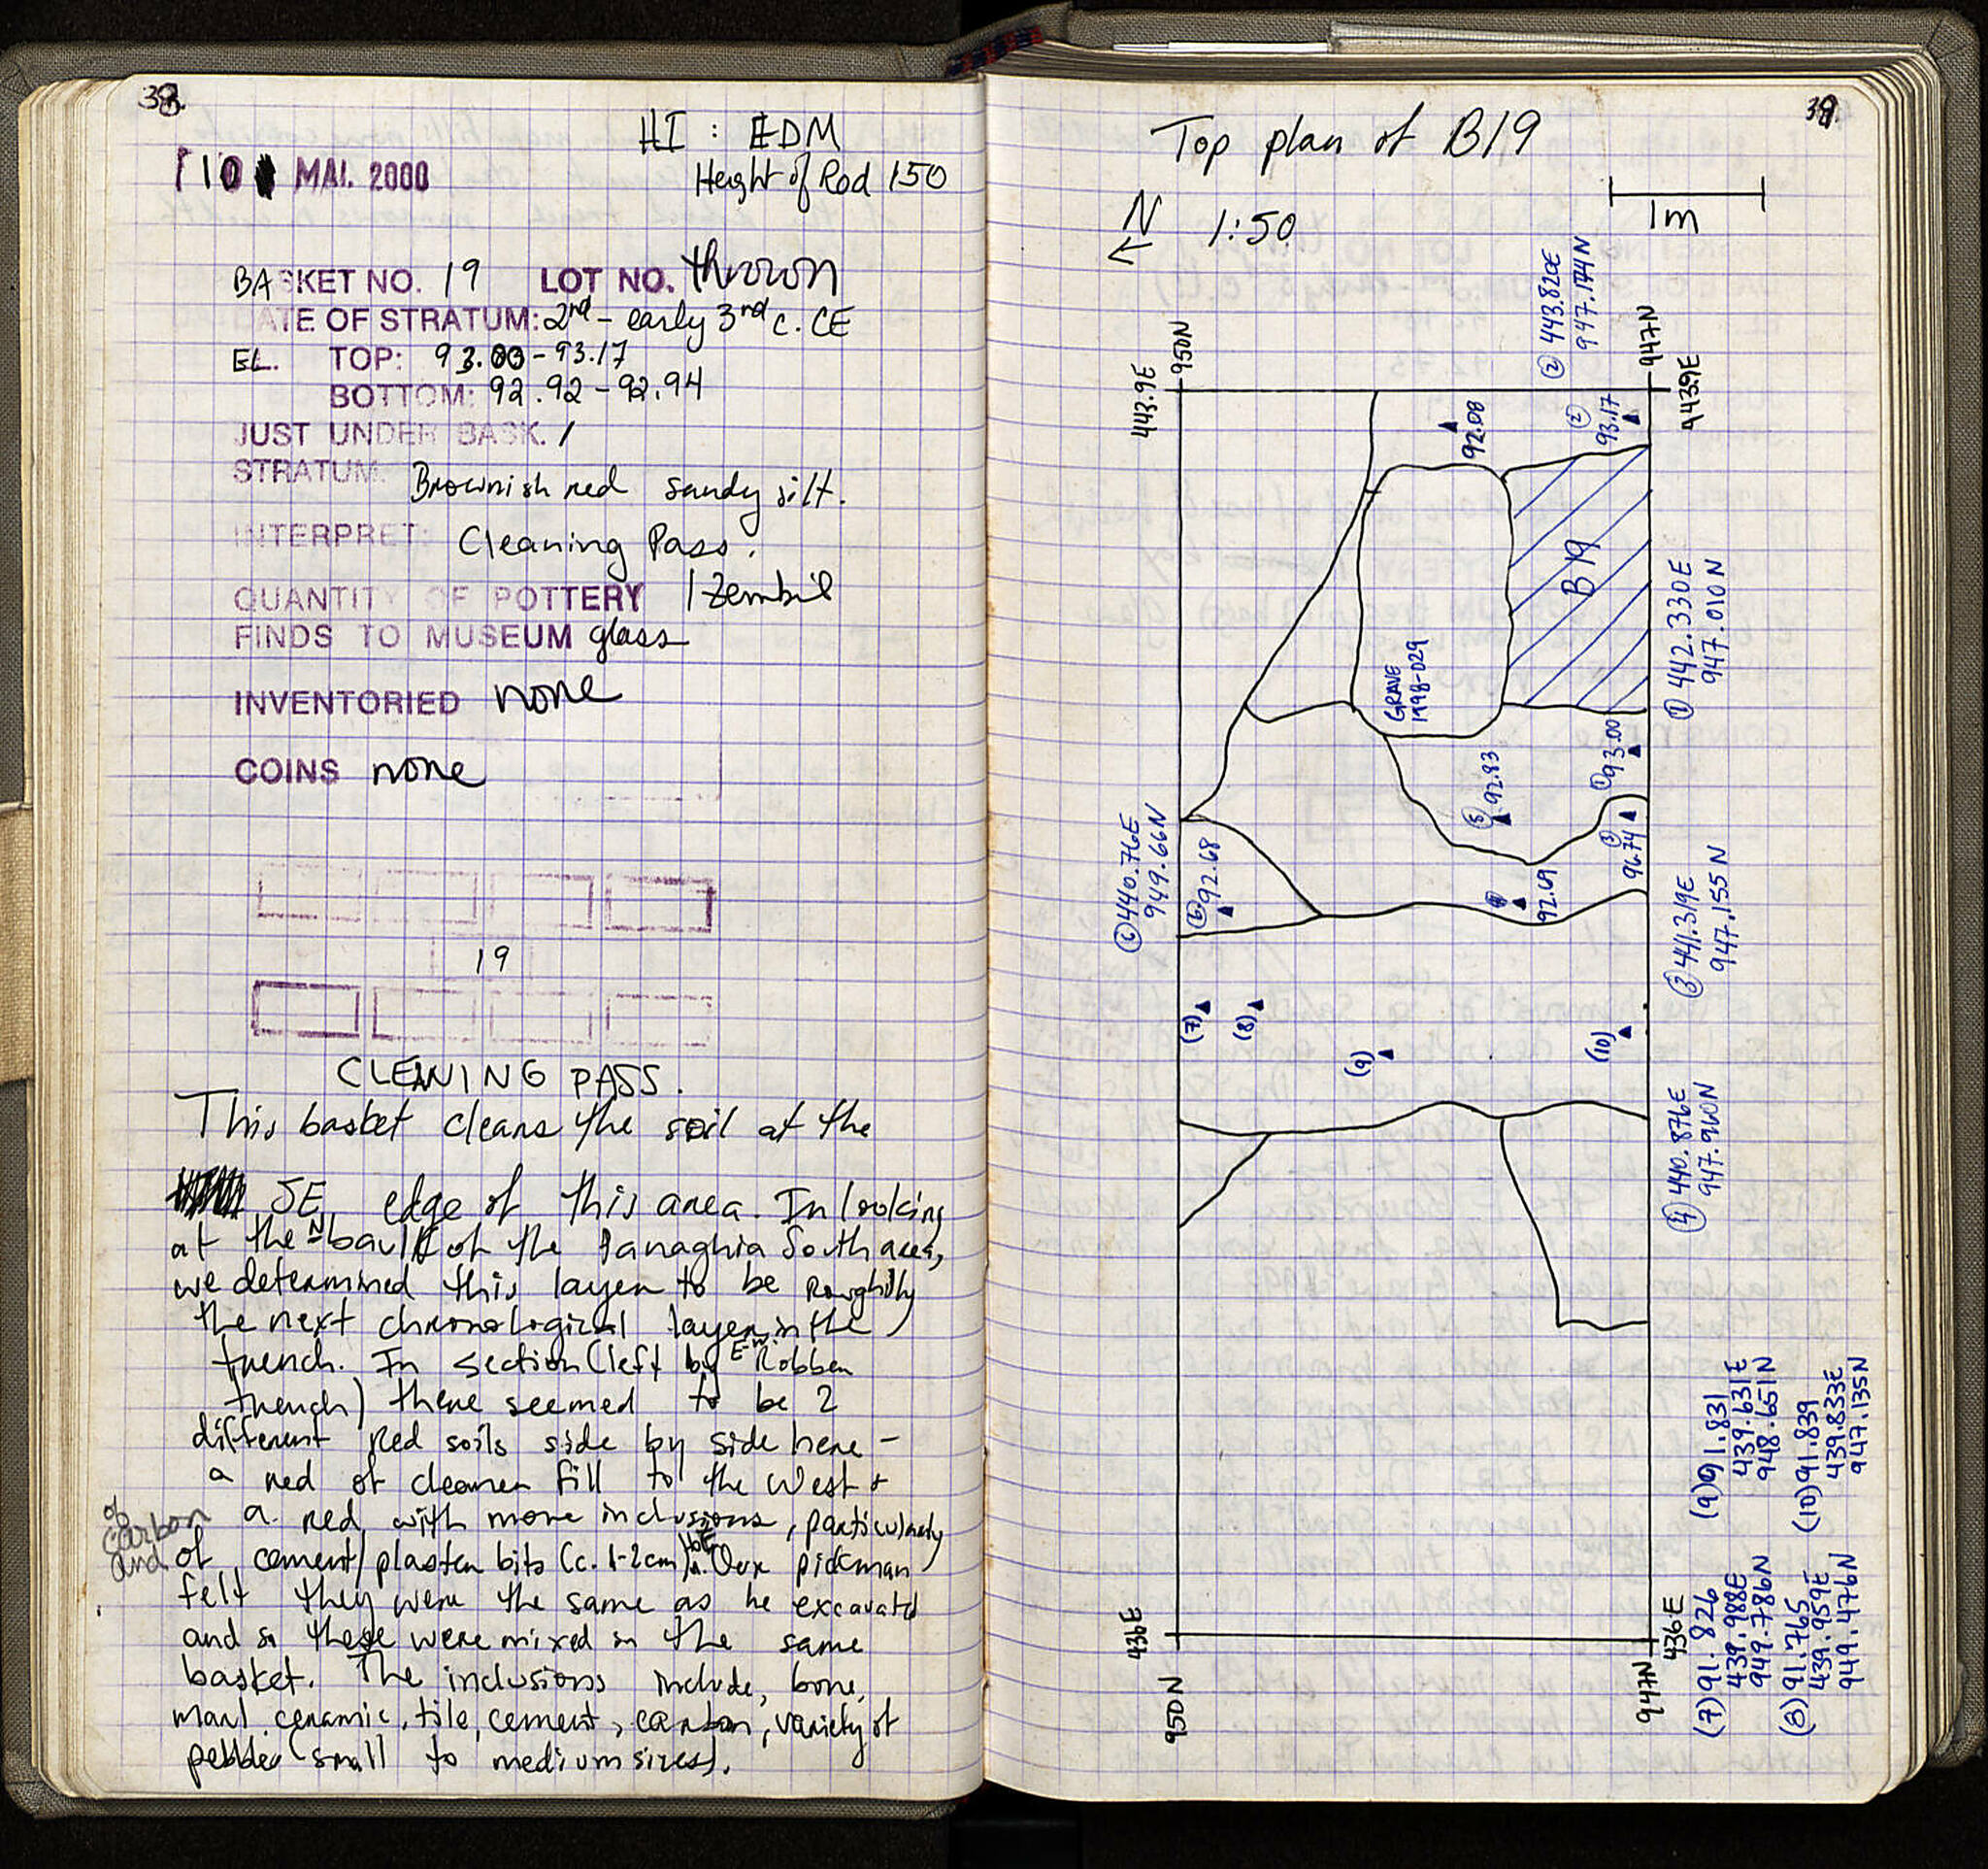 38.
HI : EDM
10 MAI. 2000
Height of Rod 150
BASKET NO. 19 LOT NO. thrown
DATE OF STRATUM: 2nd - early 3rd c. CE
EL. TOP: 93.00 - 93.17
BOTTOM: 92.92 - 92.94
JUST UNDER BASK. 1
STRATUM: Brownish red sandy silt.
INTERPRET: Cleaning Pass.
QUANTITY OF POTTERY 1 Zembil
FINDS TO MUSEUM glass
INVENTORIED none
COINS none
19
CLEANING PASS.
This basket cleans the soil at the
SE edge of this area. In looking
at the N baulk of the Panaghia South area,
we determined this layer to be roughly
the next chronological layer in the
trench. In section (left by E-W Robber
trench) there seemed to be 2
different red soils side by side here -
a red of cleaner fill to the West +
a red with more inclusions, particularly
of carbon and
of cement/plaster bits (c. 1-2cm) to E. Our pickman
felt they were the same as he excavated
and so these were mixed in the same
basket. The inclusions include, bone,
marl, ceramic, tile, cement, carbon, variety of
pebbles (small to medium sizes).
39.
Top plan of B19
N
1:50
1m
443.9E
950N
② 443.820E
947.174N
947N
443.9E
92.08
② 93.17
B19
GRAVE
1998-029
① 442.330E
947.010N
① 93.00
⑤ 92.83
③ 96.74
⑥ 440.76E
949.66N
⑥ 92.68
92.69
③ 441.319E
947.155N
(7)
(8)
(9)
(10)
④ 440.876E
947.960N
(9) 91.831
439.631E
948.651N
(10) 91.839
439.833E
947.135N
436E
950N
947N
436E
(7) 91.826
439.988E
949.786N
(8) 91.765
439.959E
949.476N